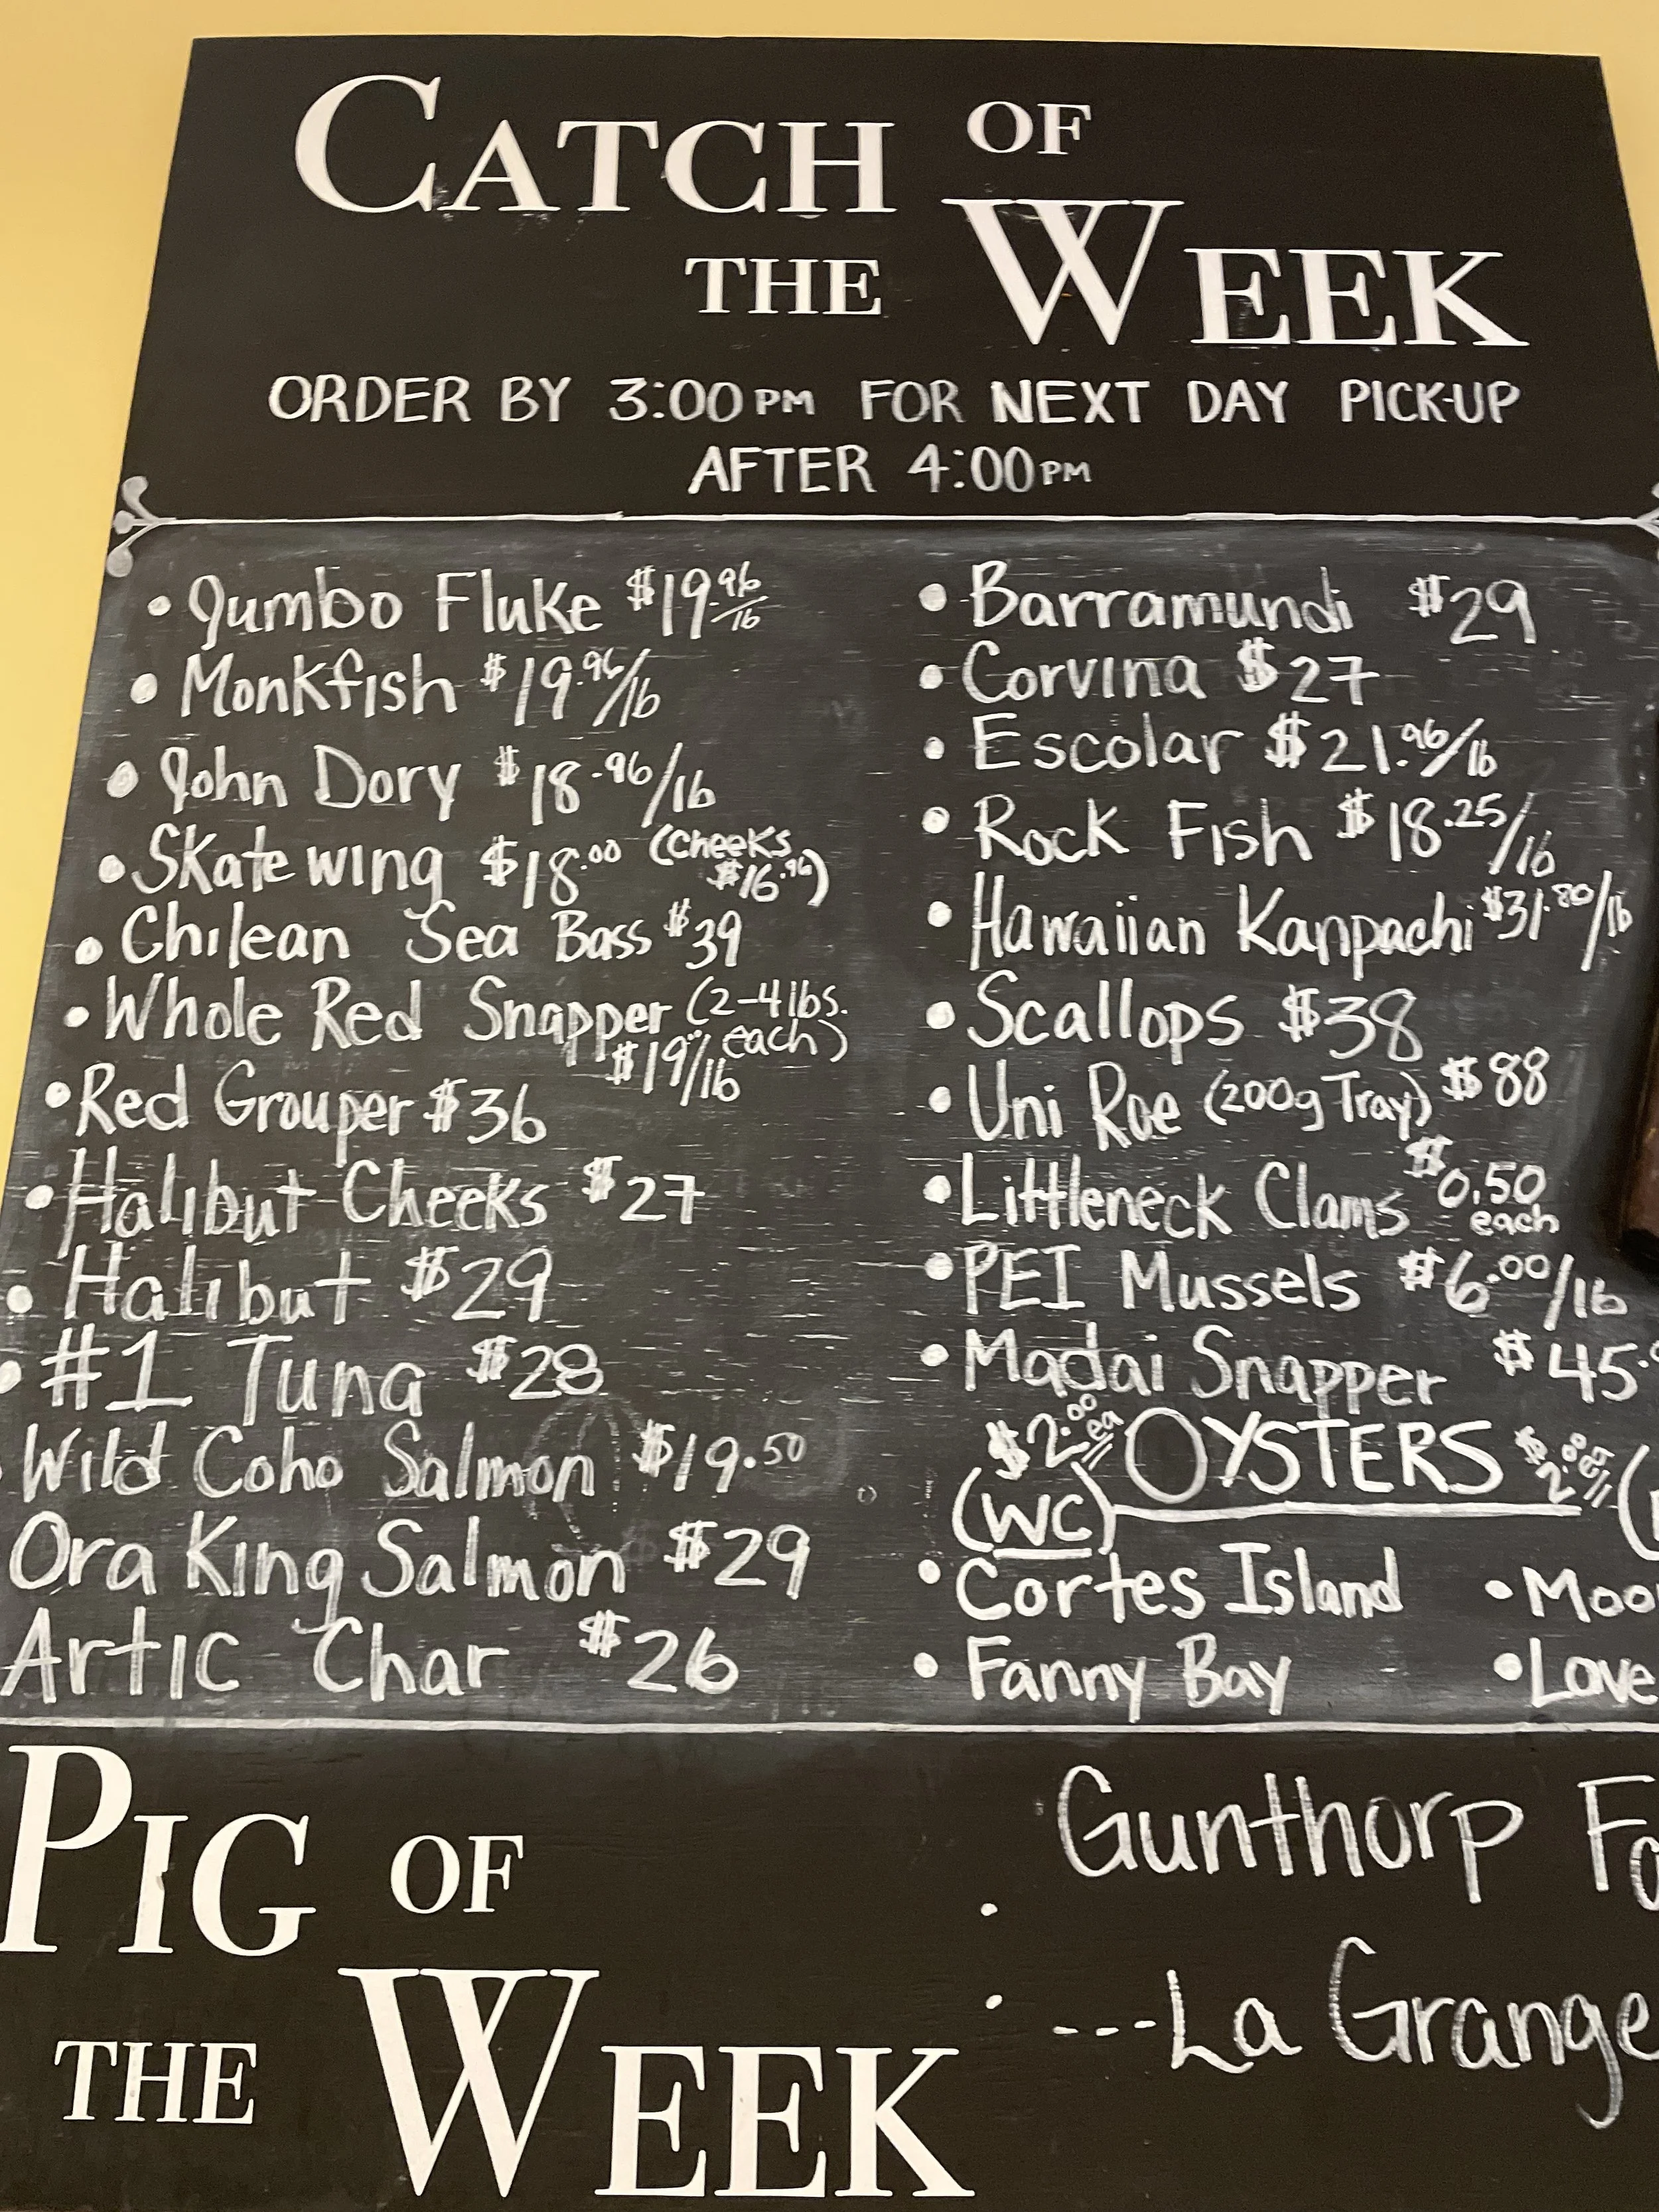 CATCH OF
THE WEEK
ORDER BY 3:00PM FOR NEXT DAY PICK-UP
AFTER 4:00PM
• Jumbo Fluke $19.96/lb
• Monkfish $19.96/lb
• John Dory $18.96/lb
• Skate wing $18.00 (cheeks
$16.96)
• Chilean Sea Bass $39
• Whole Red Snapper (2-4 lbs.
each)
$19/lb
• Red Grouper $36
• Halibut Cheeks $27
• Halibut $29
• #1 Tuna $28
Wild Coho Salmon $19.50
Ora King Salmon $29
Artic Char $26
• Barramundi $29
• Corvina $27
• Escolar $21.96/lb
• Rock Fish $18.25/lb
• Hawaiian Kanpachi $31.80/lb
• Scallops $38
• Uni Roe (200g Tray) $88
• Littleneck Clams $0.50
each
• PEI Mussels $6.00/lb
• Madai Snapper $45.
$2.00 ea OYSTERS $2.00 ea
(WC)
• Cortes Island • Moo
• Fanny Bay • Love
PIG OF
THE WEEK
Gunthorp
---La Grange